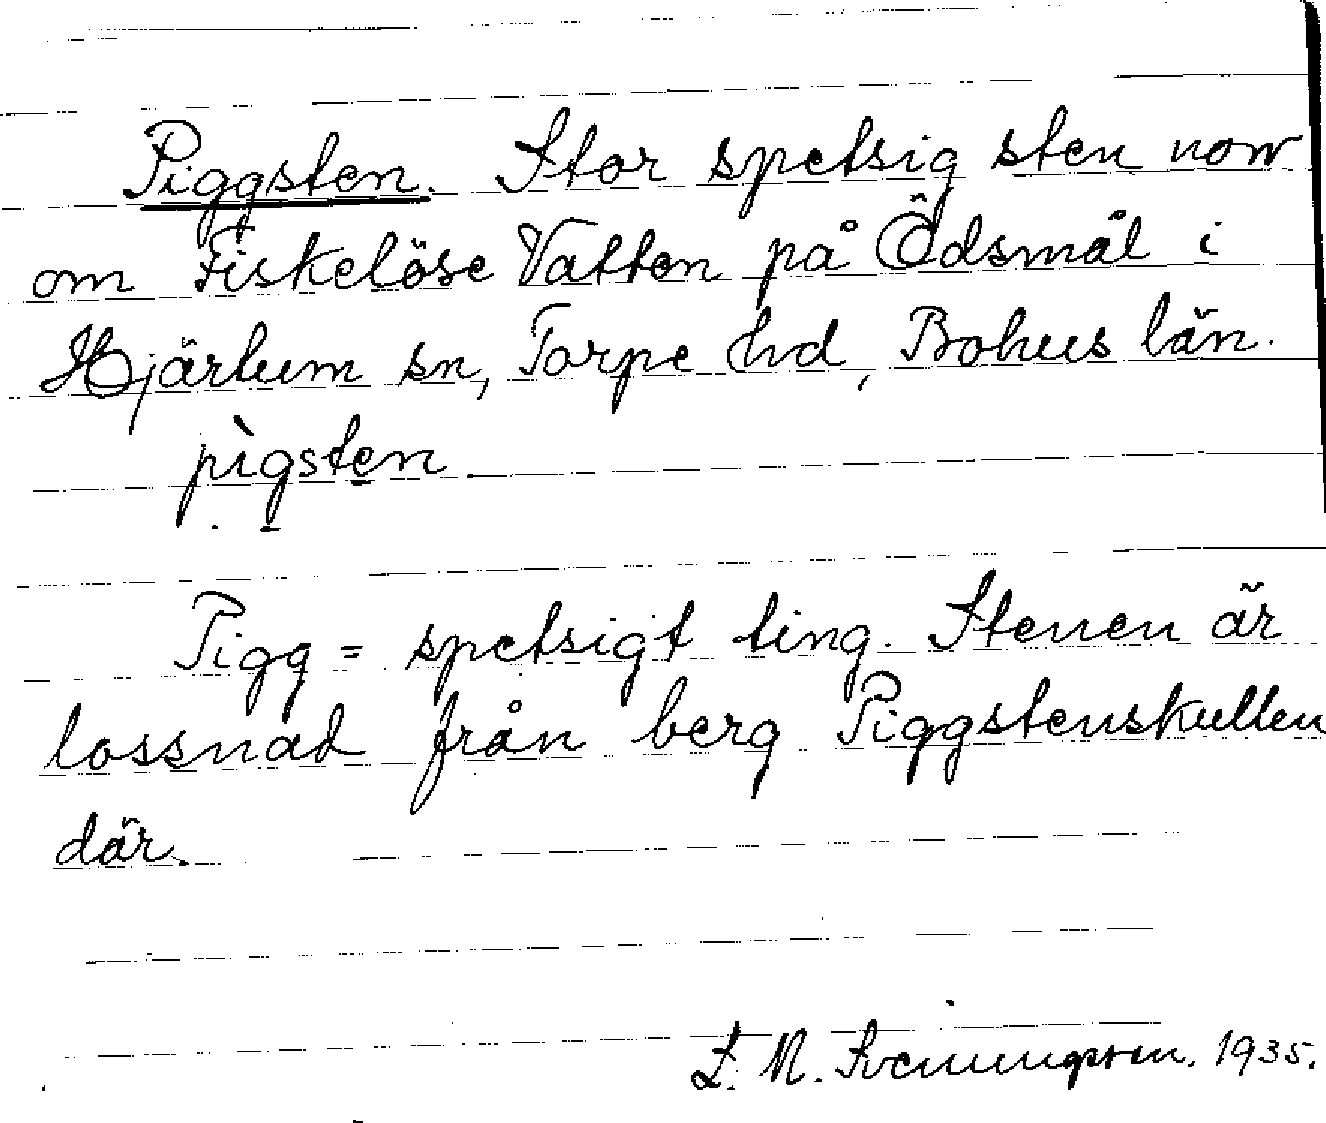 Piggsten. Stor spetsig sten norr
om Fiskelöse Vatten på Ödsmål i
Hjärtum sn, Torpe hd, Bohus län.
pìgsten
Pigg = spetsigt ting. Stenen är
lossnad från berg Piggstenskullen
där.
L. M. Svenungsson. 1935.